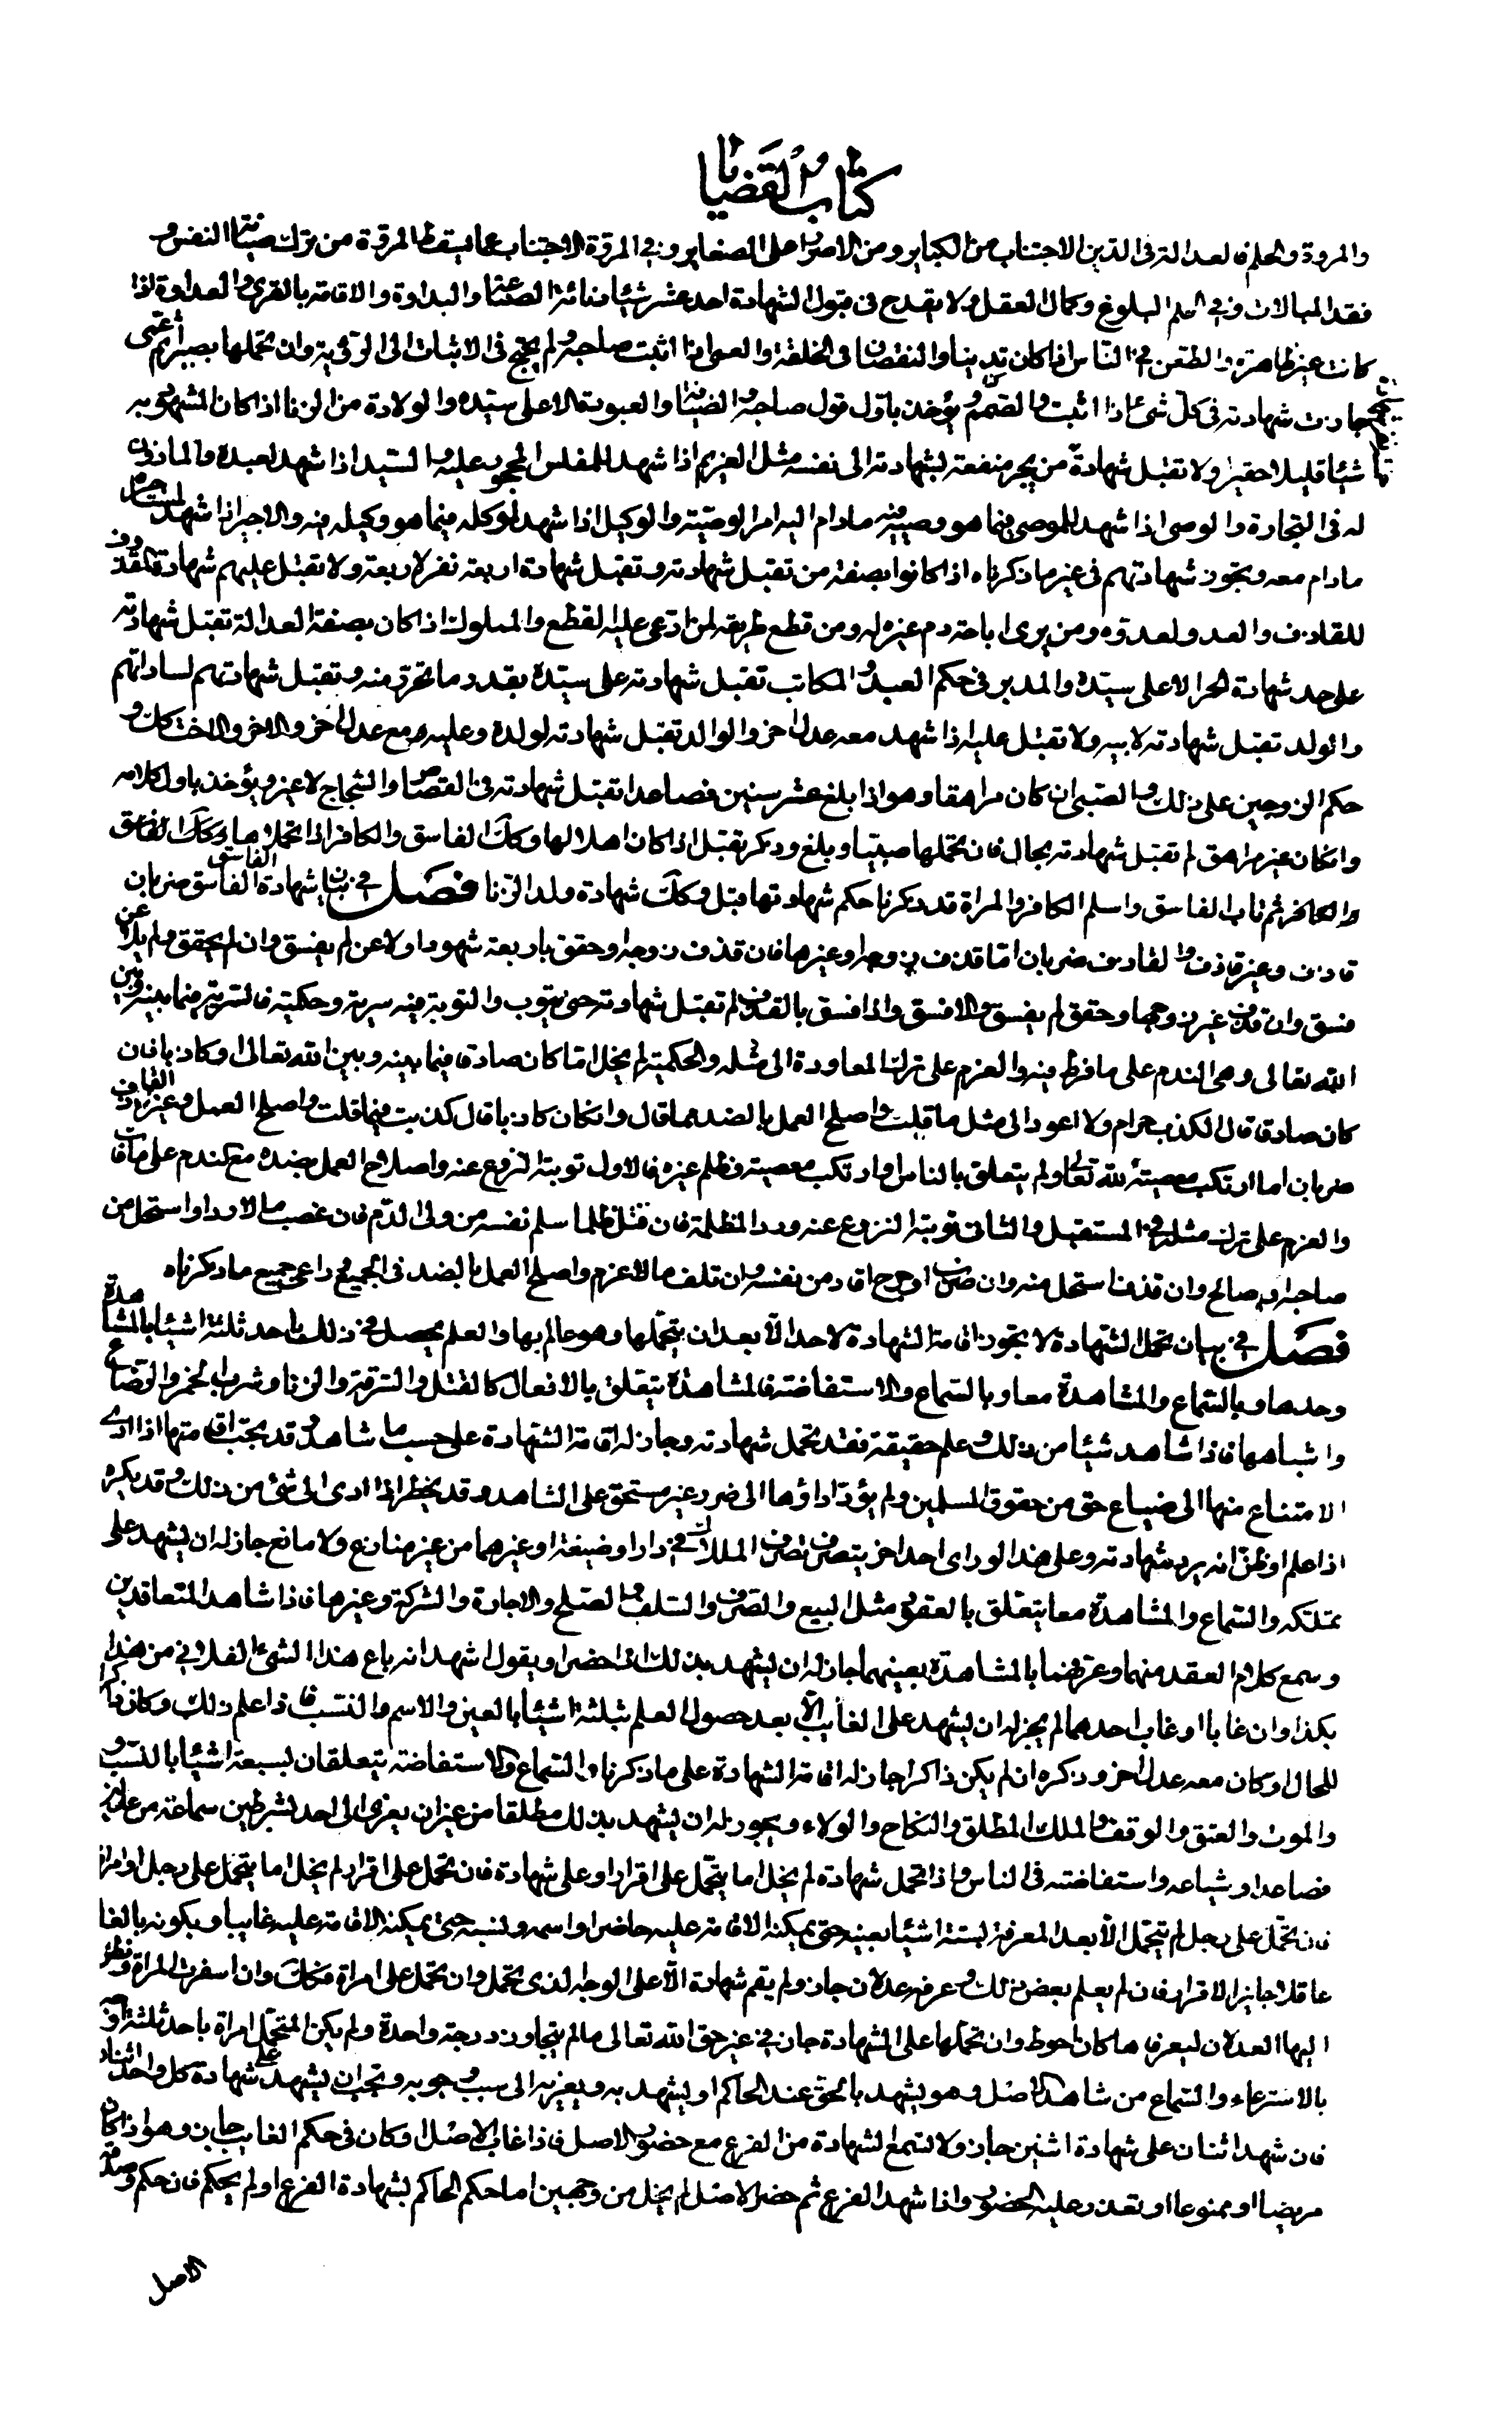 كتاب القضايا
والمروة والحلم فالعدالة في الدين الاجتناب من الكباير ومن الاصرار على الصغاير وفي المروة الاجتناب عما يسقط المروة من ترك صيانة النفس و
فقد المبالات وفي الحلم البلوغ وكمال العقل ولا يقدح في قبول الشهادة احد عشر شيئا دنائة الصناعة والبداوة والاقامة بالقرى والعداوة اذا
كانت غير ظاهرة والطعن في الناس اذا كان تدينا والنقصان في الخلقة والعمى اذا اثبت صاحبه ولم يحتج في الاثبات الى الرؤية وان تحملها بصيرا ثم عمى
جازت شهادته في كل شئ اذا اثبت والصمم ويؤخذ باول قول صاحبه والضيافة والعبودة الا على سيده والولادة من الزنا اذا كان المشهود به
شيئا قليلا حقيرا ولا تقبل شهادة من يجر منفعة بشهادته الى نفسه مثل الغريم اذا شهد للمفلس المحجور عليه والسيد اذا شهد لعبده المأذون
له في التجارة والوصى اذا شهد للموصى فيما هو وصيه فيه مادام اليه امر الوصية والوكيل اذا شهد لموكله فيما هو وكيله فيه والاجير اذا شهد لمستاجره
مادام معه وتجوز شهادتهم في غير ما ذكرناه اذا كانوا بصفة من تقبل شهادته وتقبل شهادة اربعة نفر لاربعة ولا تقبل عليهم شهادة المقذوف
للقاذف والعدو لعدوه ومن يرى اباحة دم غيره له ومن قطع طريقه لمن ادعى عليه القطع والمملوك اذا كان بصفة العدالة تقبل شهادته
على حد شهادة الحر الا على سيده والمدبر في حكم العبد والمكاتب تقبل شهادته على سيده بقدر ما تحرر منه وتقبل شهادتهم لساداتهم
والولد تقبل شهادته لابيه ولا تقبل عليه اذا شهد معه عدل اخر والوالد تقبل شهادته لولده وعليه مع عدل اخر والاخ والاخت كك و
حكم الزوجين على ذلك والصبى ان كان مراهقا وهو اذا بلغ عشر سنين فصاعدا تقبل شهادته في القصاص والشجاج لا غير ويؤخذ باول كلامه
وانكان غير مراهق لم تقبل شهادته بحال فان تحملها صبيا وبلغ وذكر تقبل اذا كان اهلا لها وكك الفاسق والكافر اذا تحملاها وكك الفاسق
والكافر ثم تاب الفاسق واسلم الكافر والمراة قد ذكرنا حكم شهادتها قبل وكك شهادة ولد الزنا فصل في بيان شهادة الفاسق الفاسق ضربان
قاذف وغير قاذف والقاذف ضربان اما قذف زوجه او غيرها فان قذف زوجه وحقق باربعة شهود او لاعن لم يفسق وان لم يحقق ولم يلاعن
فسق وان قذف غير زوجها وحقق لم يفسق والا فسق واذا فسق بالقذف لم تقبل شهادته حتى يتوب والتوبة فيه سرية وحكمية فالسرية فيما بينه وبين
الله تعالى وهى الندم على ما فرط فيه والعزم على ترك المعاودة الى مثله والحكمية لم يخل اما كان صادقا فيما بينه وبين الله تعالى او كاذبا فان
كان صادقا قال الكذب حرام ولا اعود الى مثل ما قلت واصلح العمل بالضد مما قال وانكان كاذبا قال كذبت فيما قلت واصلح العمل وغير القاذف
ضربان اما ارتكب معصية لله تعالى ولم يتعلق بالناس او ارتكب معصية فظلم غيره فالاول توبته النزوع عنه واصلاح العمل بضده مع الندم على ما فات
والعزم على ترك مثله في المستقبل والثاني توبته النزوع عنه ورد المظلمة فان قتل ظلما سلم نفسه من ولى الدم فان غصب مالا رد او استحل من
صاحبه او صالح وان قذف استحل منه وان ضرب او جرح اقاد من نفسه وان تلف مالا غرم واصلح العمل بالضد في الجميع وداعى جميع ما ذكرناه
فصل في بيان تحمل الشهادة لا تجوز اقامة الشهادة لاحد الا بعد ان يتحملها وهو عالم بها والعلم يحصل في ذلك باحد ثلثة اشيئا بالمشاهدة
وحدها وبالسماع والمشاهدة معا وبالسماع والاستفاضة فالمشاهدة يتعلق بالافعال كالقتل والسرقة والزنا وشرب الخمر والرضاع
واشباهها فاذا شاهد شيئا من ذلك وعلم حقيقة فقد تحمل شهادته وجاز له اقامة الشهادة على حسب ما شاهد وقد يجب اقامتها اذا ادى
الامتناع منها الى ضياع حق من حقوق المسلمين ولم يؤد اداؤها الى ضرر غير مستحق على الشاهد وقد يخطر اذا ادى الى شئ من ذلك وقد يكره
اذا علم او ظن انه يرد شهادته وعلى هذا لو راى احد اخر يتصرف تصرف الملاك في دار او ضيعة او غيرهما من غير منازع ولا مانع جاز له ان يشهد على
تملكه والسماع والمشاهدة معا يتعلق بالعقود مثل البيع والصرف والسلف والصلح والاجارة والشركة وغيرها فاذا شاهد المتعاقدين
وسمع كلام العقد منهما وعرفهما بالمشاهدة بعينهما جاز له ان يشهد بذلك اذا حضرا ويقول اشهد انه باع هذا الشئ الفلاني من هذا
بكذا وان غابا او غاب احدهما لم يجز له ان يشهد على الغايب الا بعد حصول العلم بثلثة اشيئا بالعين والاسم والنسب فاذا علم ذلك وكان ذاكرا
للحال او كان معه عدل اخر وذكره ان لم يكن ذاكرا جاز له اقامة الشهادة على ما ذكرنا والسماع والاستفاضة يتعلقان بسبعة اشيئا بالنسب و
والموت والعتق والوقف والملك المطلق والنكاح والولاء ويجوز له ان يشهد بذلك مطلقا من غير ان يعزى الى احد بشرطين سماعه من عدلين
فصاعدا وشياعه واستفاضته في الناس واذا تحمل شهادة لم يخل اما يتحمل على اقرار او على شهادة فان تحمل على اقرار لم يخل اما يتحمل على رجل او امراة
فان تحمل على رجل لم يتحمل الا بعد المعرفة بستة اشيئا بعينه حتى يمكنه الاقامة عليه حاضرا واسمه ونسبه حتى يمكنه الاقامة عليه غايبا وبكونه بالغا
عاقلا جايز الاقرار فان لم يعلم بعض ذلك وعرفه عدلان جاز ولم يقم شهادة الا على الوجه الذى تحمل وان تحمل على امراة فكك وان اسفرت المراة ونظر
اليها العدلان ليعرفاها كان احوط وان تحملها على الشهادة جاز في غير حق الله تعالى مالم يتجاوز درجة واحدة ولم يكن المتحمل امراة باحد ثلثة اوجه
بالاسترعاء والسماع من شاهد الاصل وهو يشهد بالحق عند الحاكم او يشهد به ويعزيه الى سبب وجوبه ويجب ان يشهد على شهادة كل واحد اثنان
فان شهد اثنان على شهادة اثنين جاز ولا تسمع الشهادة من الفرع مع حضور الاصل فاذا غاب الاصل او كان في حكم الغايب جاز وهو اذا كان
مريضا او ممنوعا او تعذر عليه الحضور واذا شهد الفرع ثم حضر الاصل لم يخل من وجهين اما حكم الحاكم بشهادة الفرع او لم يحكم فان حكم وصدقه
الاصل